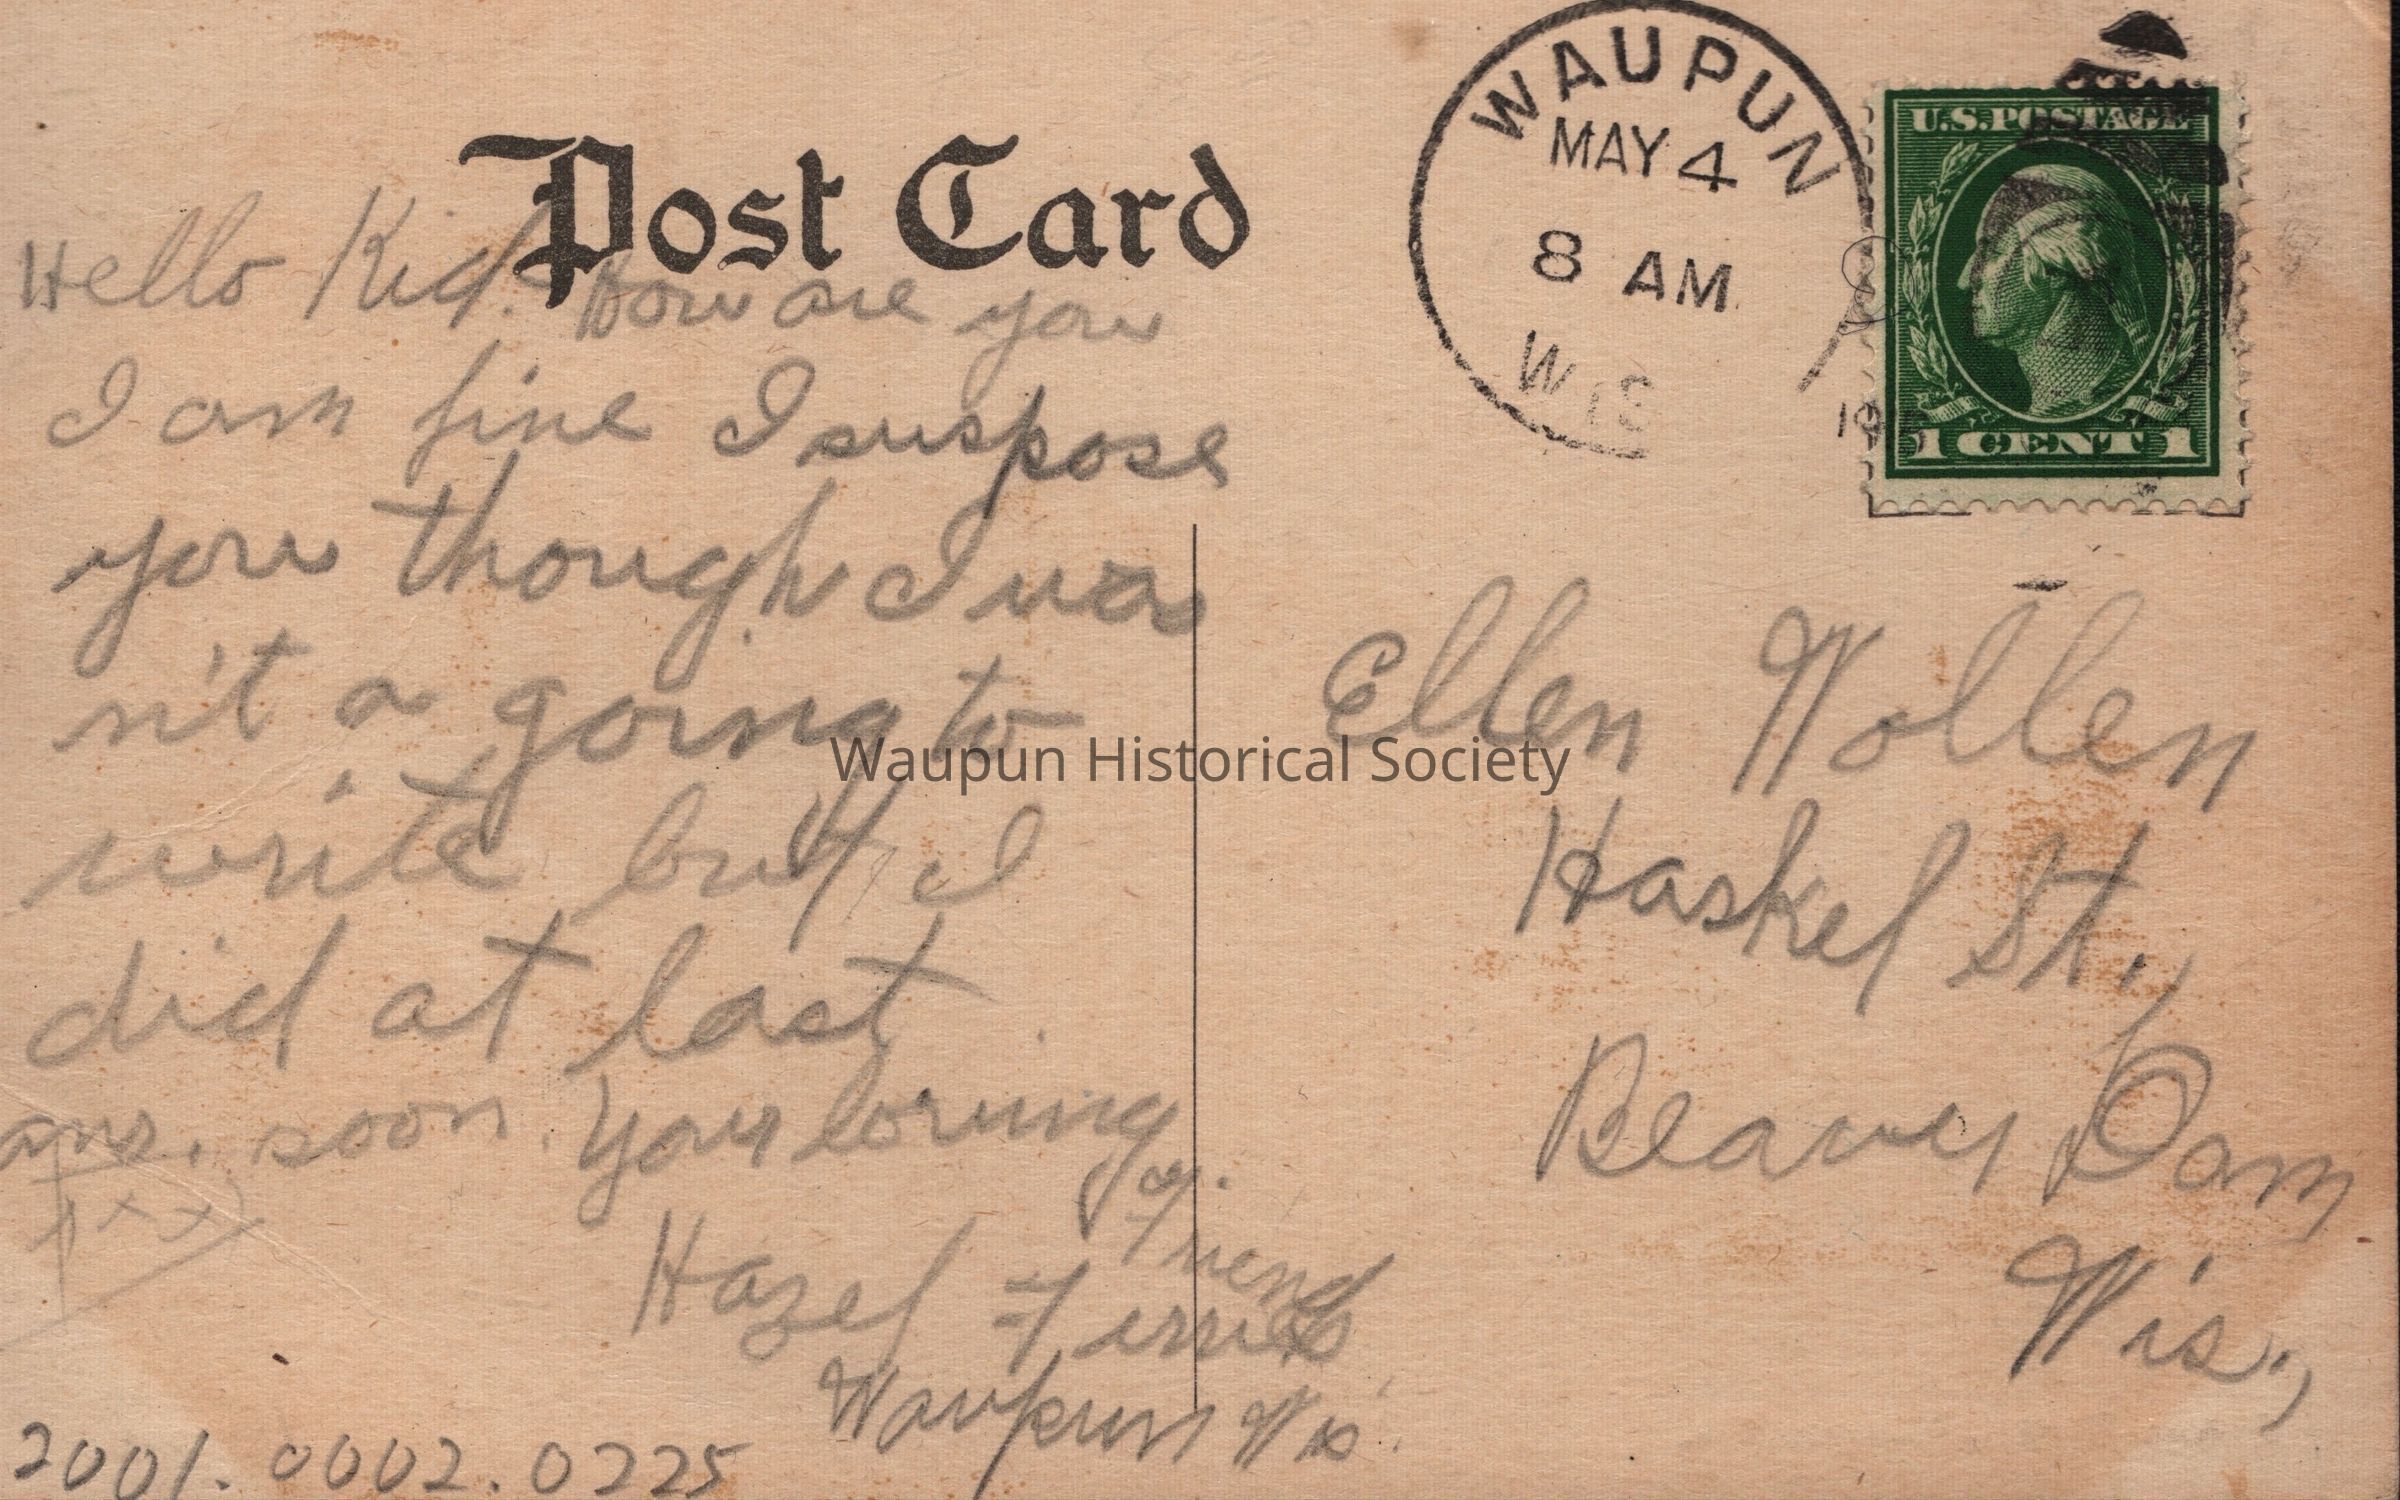 Post Card
WAUPUN
MAY 4
8 AM
WIS
U.S. POSTAGE
1 CENT 1
Hello Kid. How are you
I am fine I suspose
you though I was
n't a going to
write but I
did at last
ans. soon. Your loving
Friend
Hazel
Waupun Wis.
xxx
Ellen Wollen
Haskel St.,
Beaver Dam
Wis.,
Waupun Historical Society
2001.0002.0225